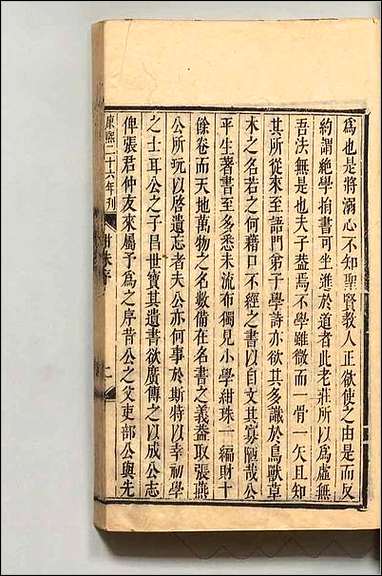 爲也是將溺心不知聖賢教人正欲使之由是而反
約謂絶學捐書可坐進於道者此老莊所以爲虛無
吾法無是也夫子葢焉不學雖微而一骨一矢且知
其所從來至語門弟子學詩亦欲其多識於鳥獸草
木之名若之何藉口不經之書以自文其寡陋哉公
平生著書至多悉未流布獨見小學紺珠一編財十
餘卷而天地萬物之名數備在名書之義葢取張燕
公所玩以啓遺忘者夫公亦何事於斯特以幸初學
之士耳公之子昌世寶其遺書欲廣傳之以成公志
俾張君仲友來屬予爲之序昔公之父吏部公與先
康熙二十六年刊
紺珠序
二